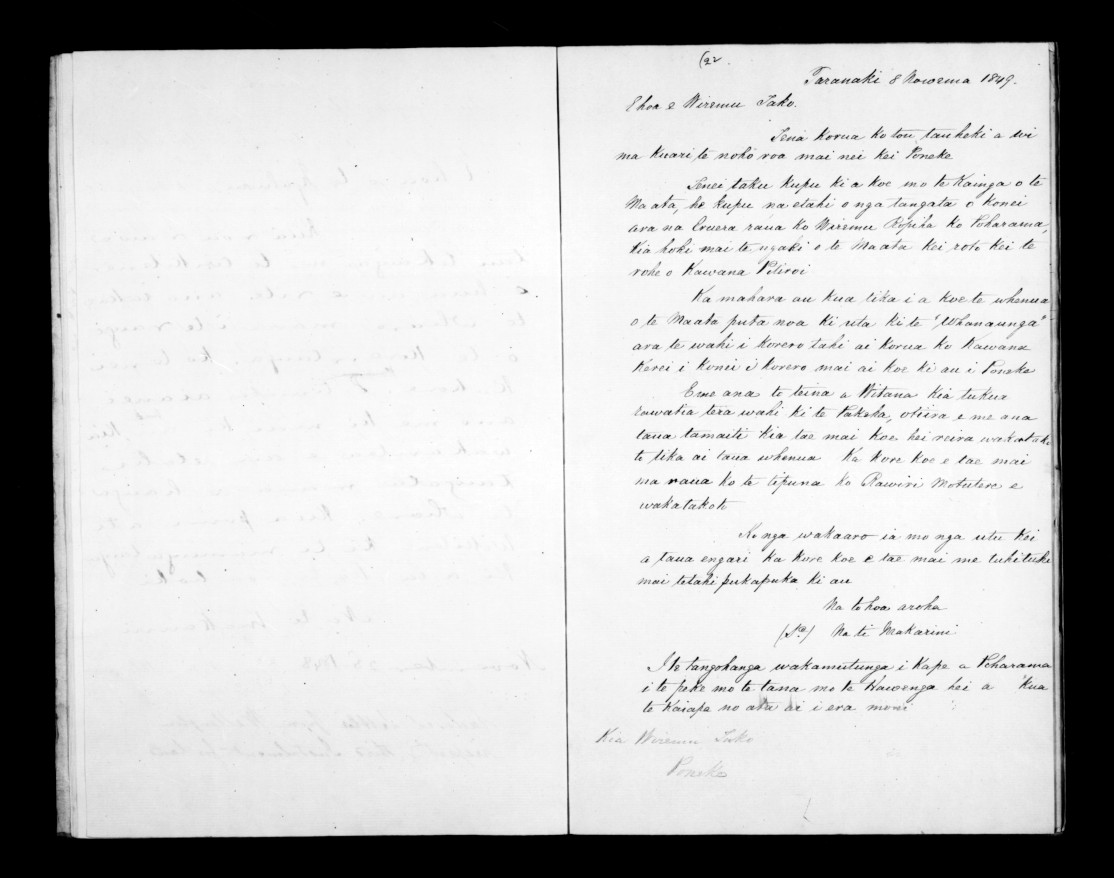 (22.
Taranaki 8 Nowema 1849.
Ehoa e Wiremu Tako.
Tena korua ko tou tauheki a Wi
ma kuari te noho roa mai nei kei Poneke
Tenei taku kupu ki a koe mo te Kainga o te
Maata, he kupu na etahi o nga tangata o konei
ara na Eruera raua ko Wiremu Ropiha ko Poharama,
kia hoki mai te ngaki o te Maata kei roto kei te
rohe o Kawana Pitiroi
Ka mahara au kua tika i a koe te whenua
o te Maata puta noa ki uta ki te "Whanaunga"
ara te wahi i korero tahi ai korua ko Kawana
Kerei i konei i korero mai ai koe ki au i Poneke
E me ana to teina a Witana kia tukua
tera wahi ki te Pakeha, otiira e me ana
taua tamaiti kia tae mai koe hei reira
te tika ai taua whenua Ka kore koe e tae mai
ma raua ko te tipuna ko Rawiri Motutere e
wakatakoto
Ko nga wakaaro ia mo nga utu kei
a taua engari ka kore koe e tae mai me tuhituhi
mai tetahi pukapuka ki au
Na to hoa aroha
Na te Makarini
I te tangohanga wakamutunga i kape a Poharama
i te peke mo te tana mo te Hawenga hei a 'kua
te Karapa no ata ai i era moni
Kia Wiremu Tako
Poneke